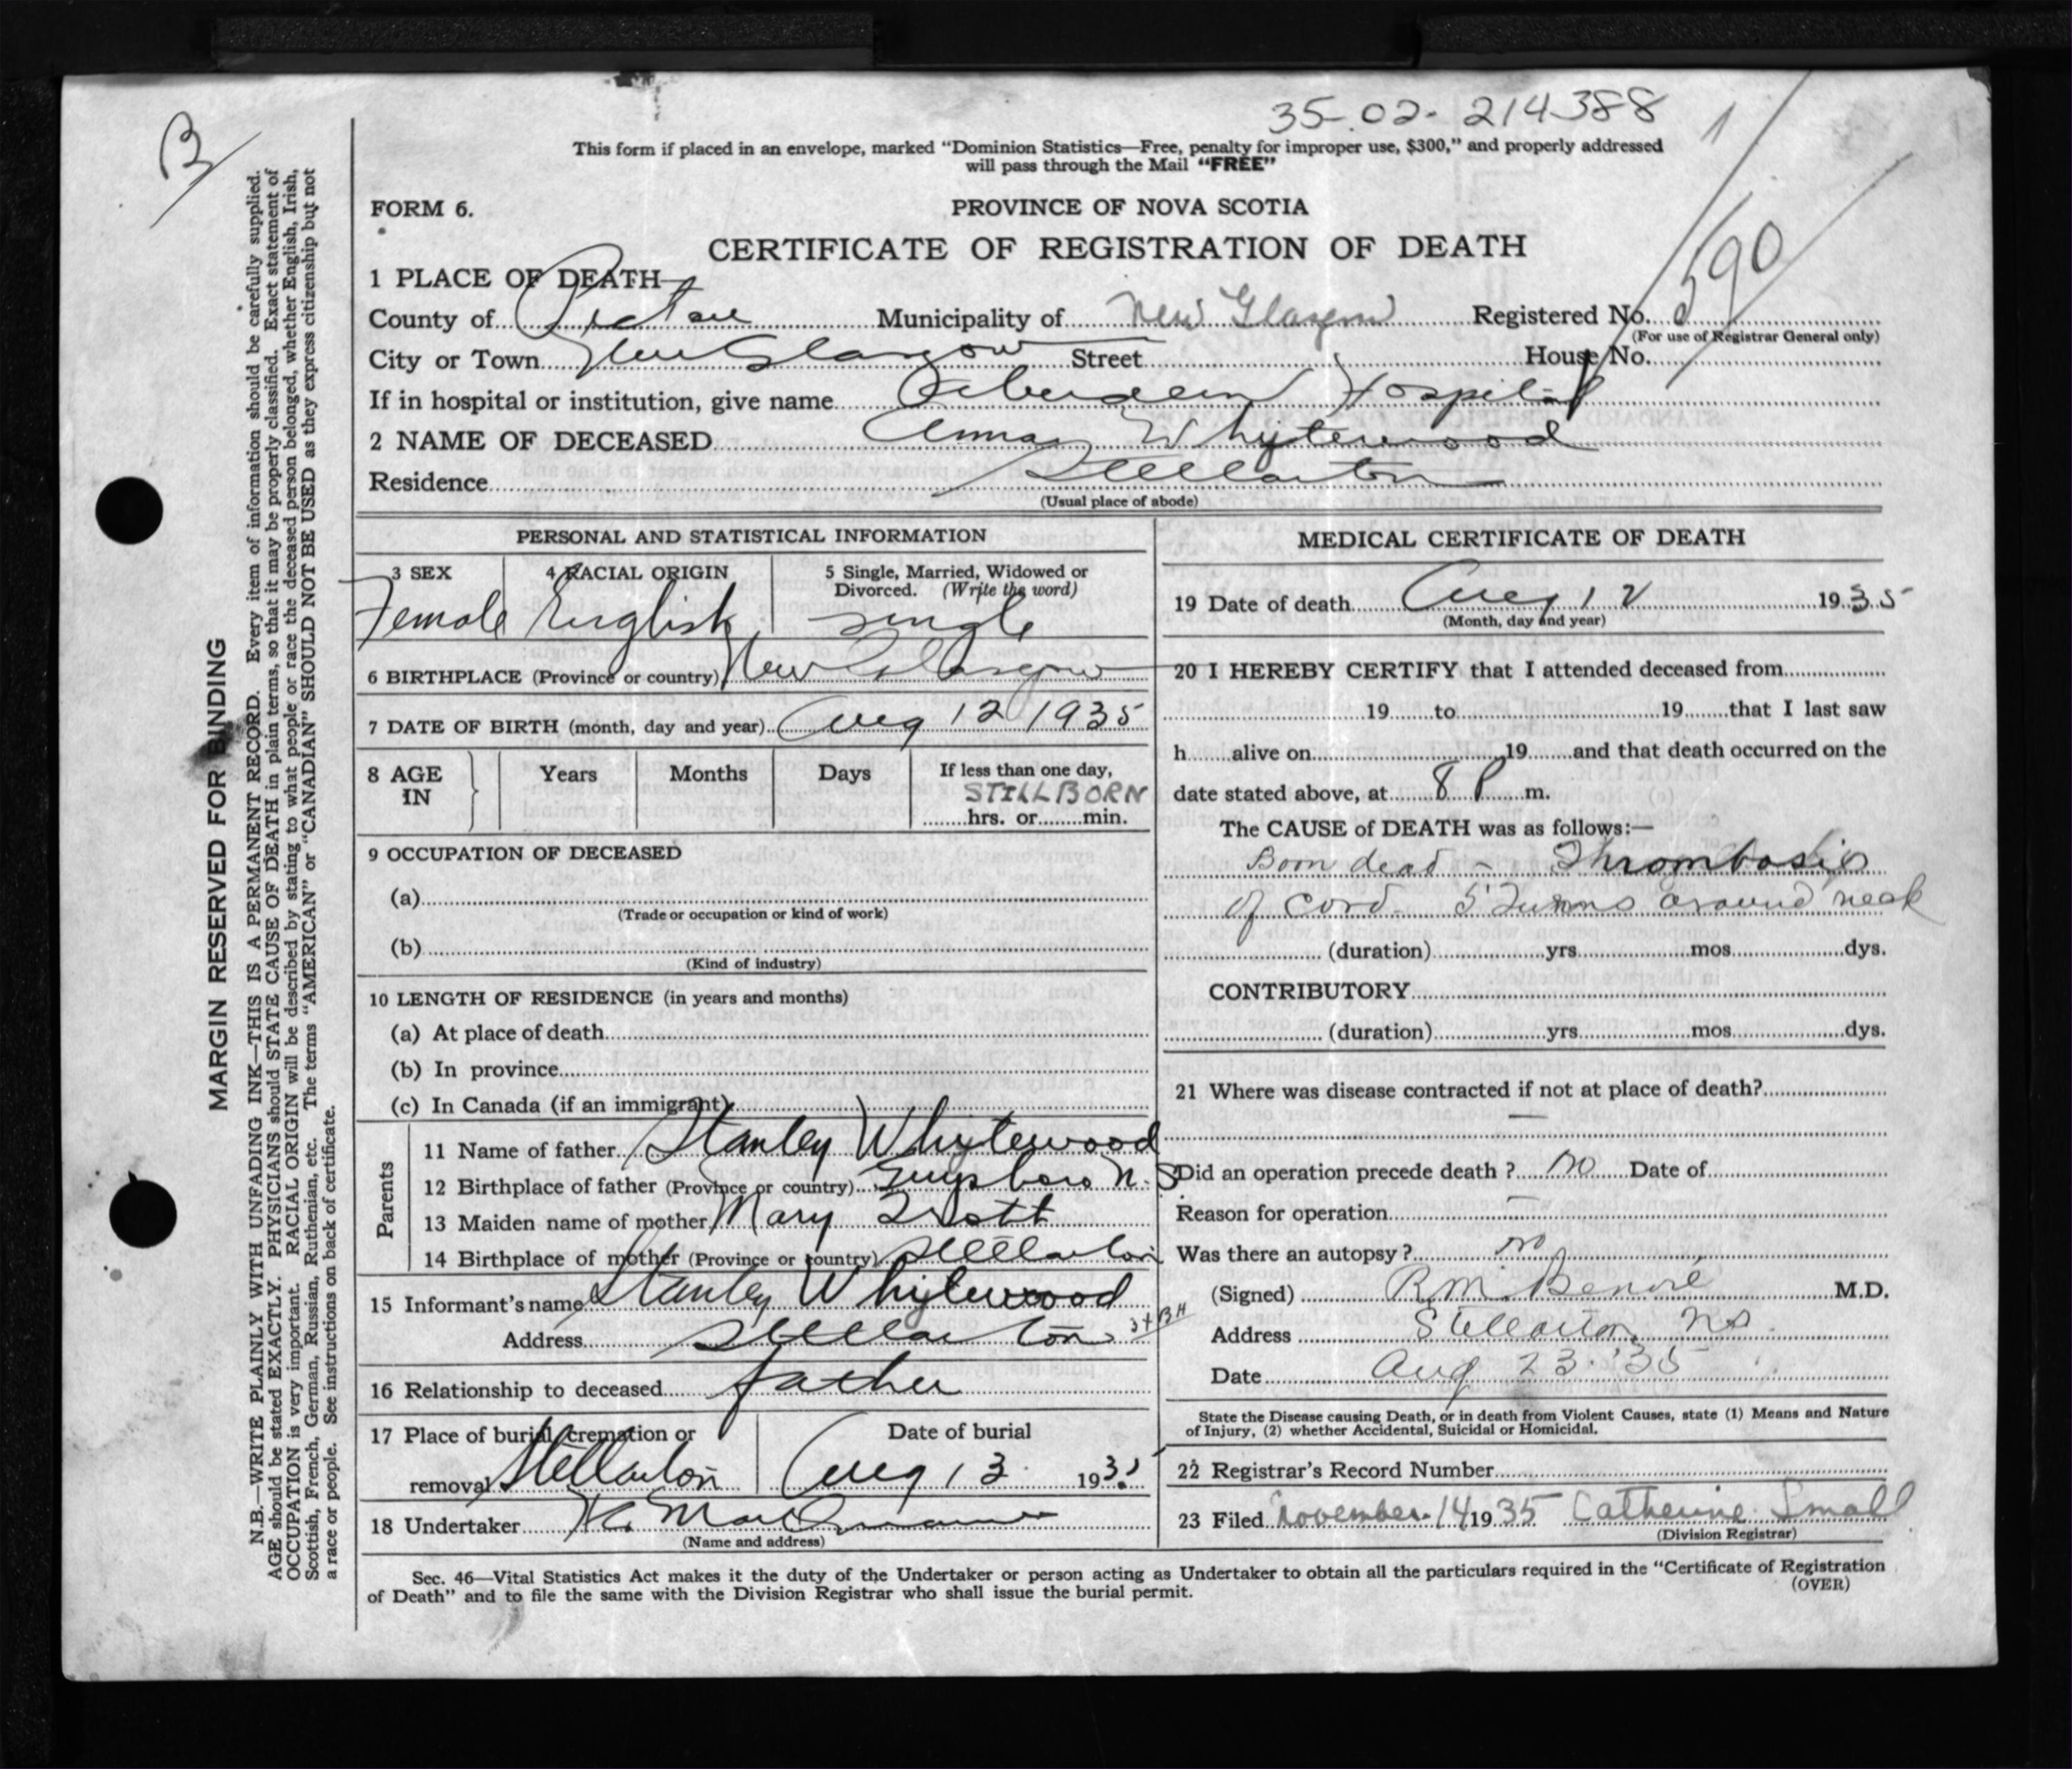 35-02-214388
This form if placed in an envelope, marked "Dominion Statistics—Free, penalty for improper use, $300," and properly addressed
will pass through the Mail "FREE"
B
1
FORM 6.
PROVINCE OF NOVA SCOTIA
CERTIFICATE OF REGISTRATION OF DEATH
1 PLACE OF DEATH
County of Pictou Municipality of New Glasgow Registered No. 590
(For use of Registrar General only)
City or Town New Glasgow Street House No.
If in hospital or institution, give name Aberdeen Hospital
2 NAME OF DECEASED Anna Whytewood
Residence Stellarton
(Usual place of abode)
PERSONAL AND STATISTICAL INFORMATION
3 SEX 4 RACIAL ORIGIN 5 Single, Married, Widowed or
Divorced. (Write the word)
Female English single
6 BIRTHPLACE (Province or country) New Glasgow
7 DATE OF BIRTH (month, day and year) Aug 12 1935
8 AGE IN Years Months Days If less than one day,
STILLBORN
hrs. or min.
9 OCCUPATION OF DECEASED
(a)
(Trade or occupation or kind of work)
(b)
(Kind of industry)
10 LENGTH OF RESIDENCE (in years and months)
(a) At place of death
(b) In province
(c) In Canada (if an immigrant)
Parents
11 Name of father Stanley Whytewood
12 Birthplace of father (Province or country) Guysboro N.S
13 Maiden name of mother Mary
14 Birthplace of mother (Province or country) Stellarton
15 Informant's name Stanley Whytewood
Address Stellarton
16 Relationship to deceased father
17 Place of burial, cremation or Date of burial
removal Stellarton Aug 13 1935
18 Undertaker
(Name and address)
MEDICAL CERTIFICATE OF DEATH
19 Date of death Aug 12 1935
(Month, day and year)
20 I HEREBY CERTIFY that I attended deceased from
19 to 19 that I last saw
h alive on 19 and that death occurred on the
date stated above, at 8 P m.
The CAUSE of DEATH was as follows:—
Born dead - Thrombosis
of cord - 5 Turns around neck
(duration) yrs. mos. dys.
CONTRIBUTORY
(duration) yrs. mos. dys.
21 Where was disease contracted if not at place of death?
—
Did an operation precede death? no Date of
Reason for operation —
Was there an autopsy? no
(Signed) R.M. Benvie M.D.
Address Stellarton, NS
Date Aug 23 '35
State the Disease causing Death, or in death from Violent Causes, state (1) Means and Nature
of Injury, (2) whether Accidental, Suicidal or Homicidal.
22 Registrar's Record Number
23 Filed November 14 1935 Catherine Small
(Division Registrar)
Sec. 46—Vital Statistics Act makes it the duty of the Undertaker or person acting as Undertaker to obtain all the particulars required in the "Certificate of Registration
of Death" and to file the same with the Division Registrar who shall issue the burial permit.
(OVER)
MARGIN RESERVED FOR BINDING
N.B.—WRITE PLAINLY WITH UNFADING INK—THIS IS A PERMANENT RECORD. Every item of information should be carefully supplied.
AGE should be stated EXACTLY. PHYSICIANS should STATE CAUSE OF DEATH in plain terms, so that it may be properly classified. Exact statement of
OCCUPATION is very important. RACIAL ORIGIN will be described by stating to what people or race the deceased person belonged, whether English, Irish,
Scottish, French, German, Russian, Ruthenian, etc. The terms "AMERICAN" or "CANADIAN" SHOULD NOT BE USED as they express citizenship but not
a race or people. See instructions on back of certificate.